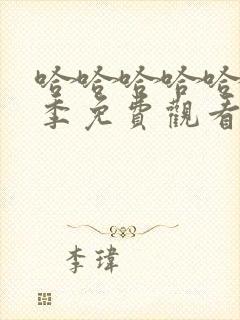 哈哈哈哈哈
季免費觀看
李瑋